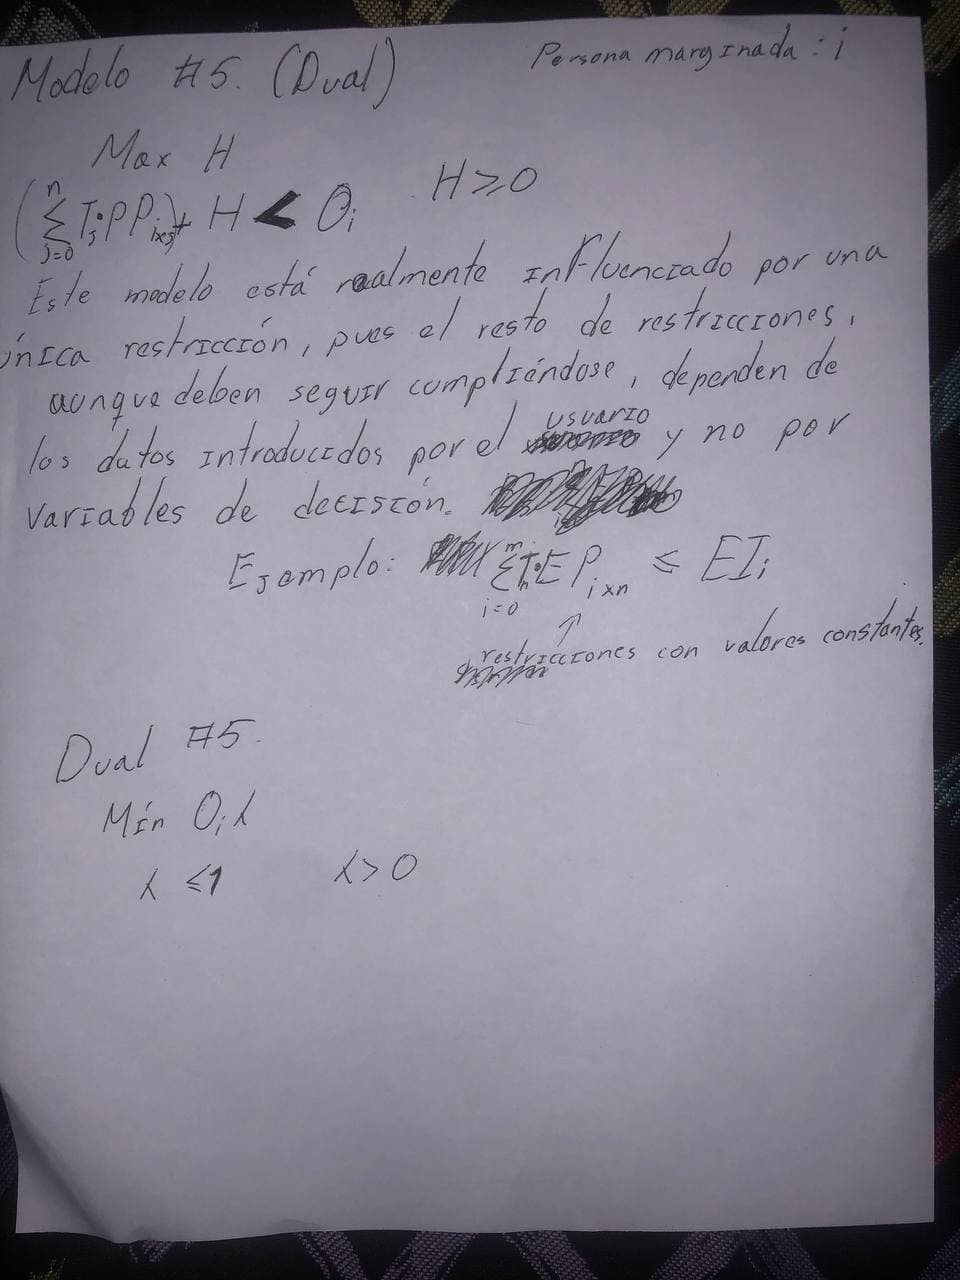 Modelo #5. (Dual)
Persona marginada : i
Max H
(∑_{j=0}^{n} T_j·PP_{i×j}) + H < O_i    H ≥ 0
Este modelo está realmente influenciado por una
única restricción, pues el resto de restricciones,
aunque deben seguir cumpliéndose, dependen de
los datos introducidos por el usuario y no por
variables de decisión.
Ejemplo: ∑_{i=0}^{m} T_n·EP_{i×n} ≤ EI_i
↑
restricciones con valores constantes.
Dual #5.
Mín O_i λ
λ ≤ 1    λ > 0